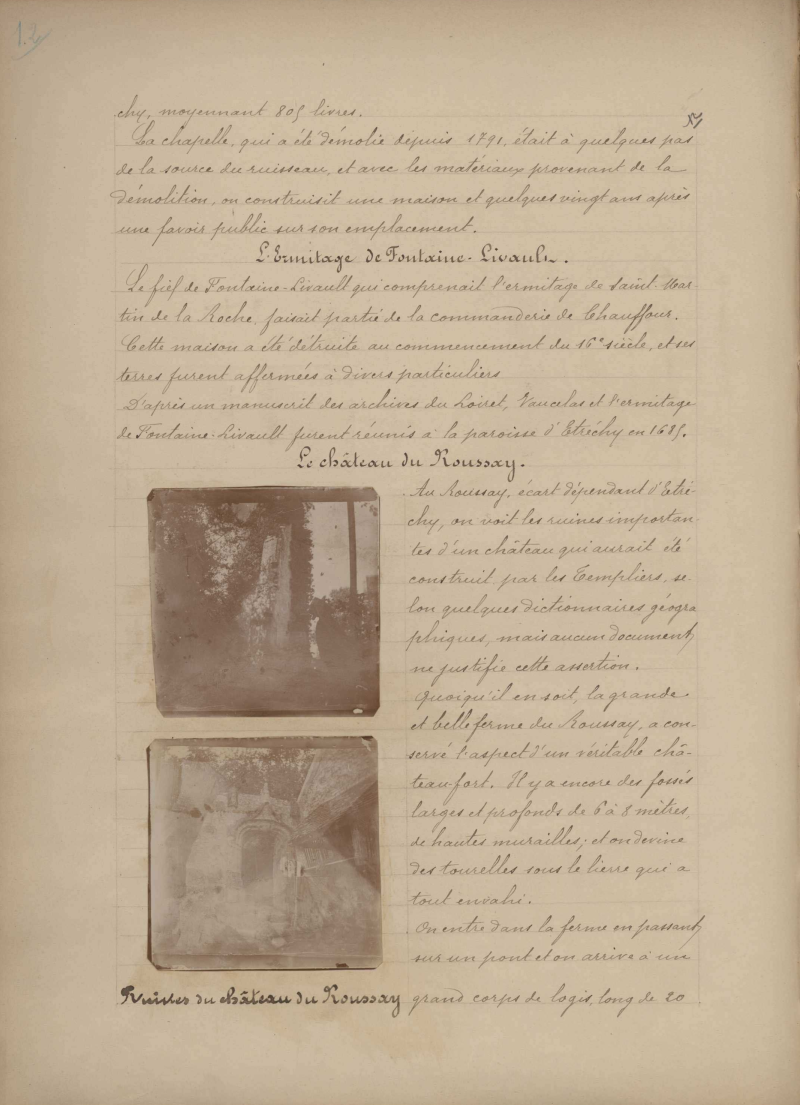 12
51
chy, moyennant 805 livres.
La chapelle, qui a été démolie depuis 1791, était à quelques pas
de la source du ruisseau, et avec les matériaux provenant de la
démolition, on construisit une maison et quelques vingt ans après
une favoir public sur son emplacement.
L'Ermitage de Fontaine-Livault.
Le fief de Fontaine-Livault qui comprenait l'ermitage de Saint-Mar
tin de la Roche, faisait partie de la commanderie de Chauffour.
Cette maison a été détruite au commencement du 16e siècle, et ses
terres furent affermées à divers particuliers
D'après un manuscrit des archives du Loiret, Vaucelas et l'ermitage
de Fontaine-Livault furent réunis à la paroisse d'Etréchy en 1685.
Le château du Roussay.
Au Roussay, écart dépendant d'Etré-
chy, on voit les ruines importan-
tes d'un château qui aurait été
construit par les Templiers, se-
lon quelques dictionnaires géogra
phiques, mais aucun document
ne justifie cette assertion.
Quoiqu'il en soit, la grande
et belle ferme du Roussay, a con-
servé l'aspect d'un véritable châ-
teau-fort. Il y a encore des fossés
larges et profonds de 6 à 8 mètres,
de hautes murailles; et on devine
des tourelles sous le lierre qui a
tout envahi.
On entre dans la ferme en passant
sur un pont et on arrive à un
grand corps de logis, long de 20
Ruines du château du Roussay